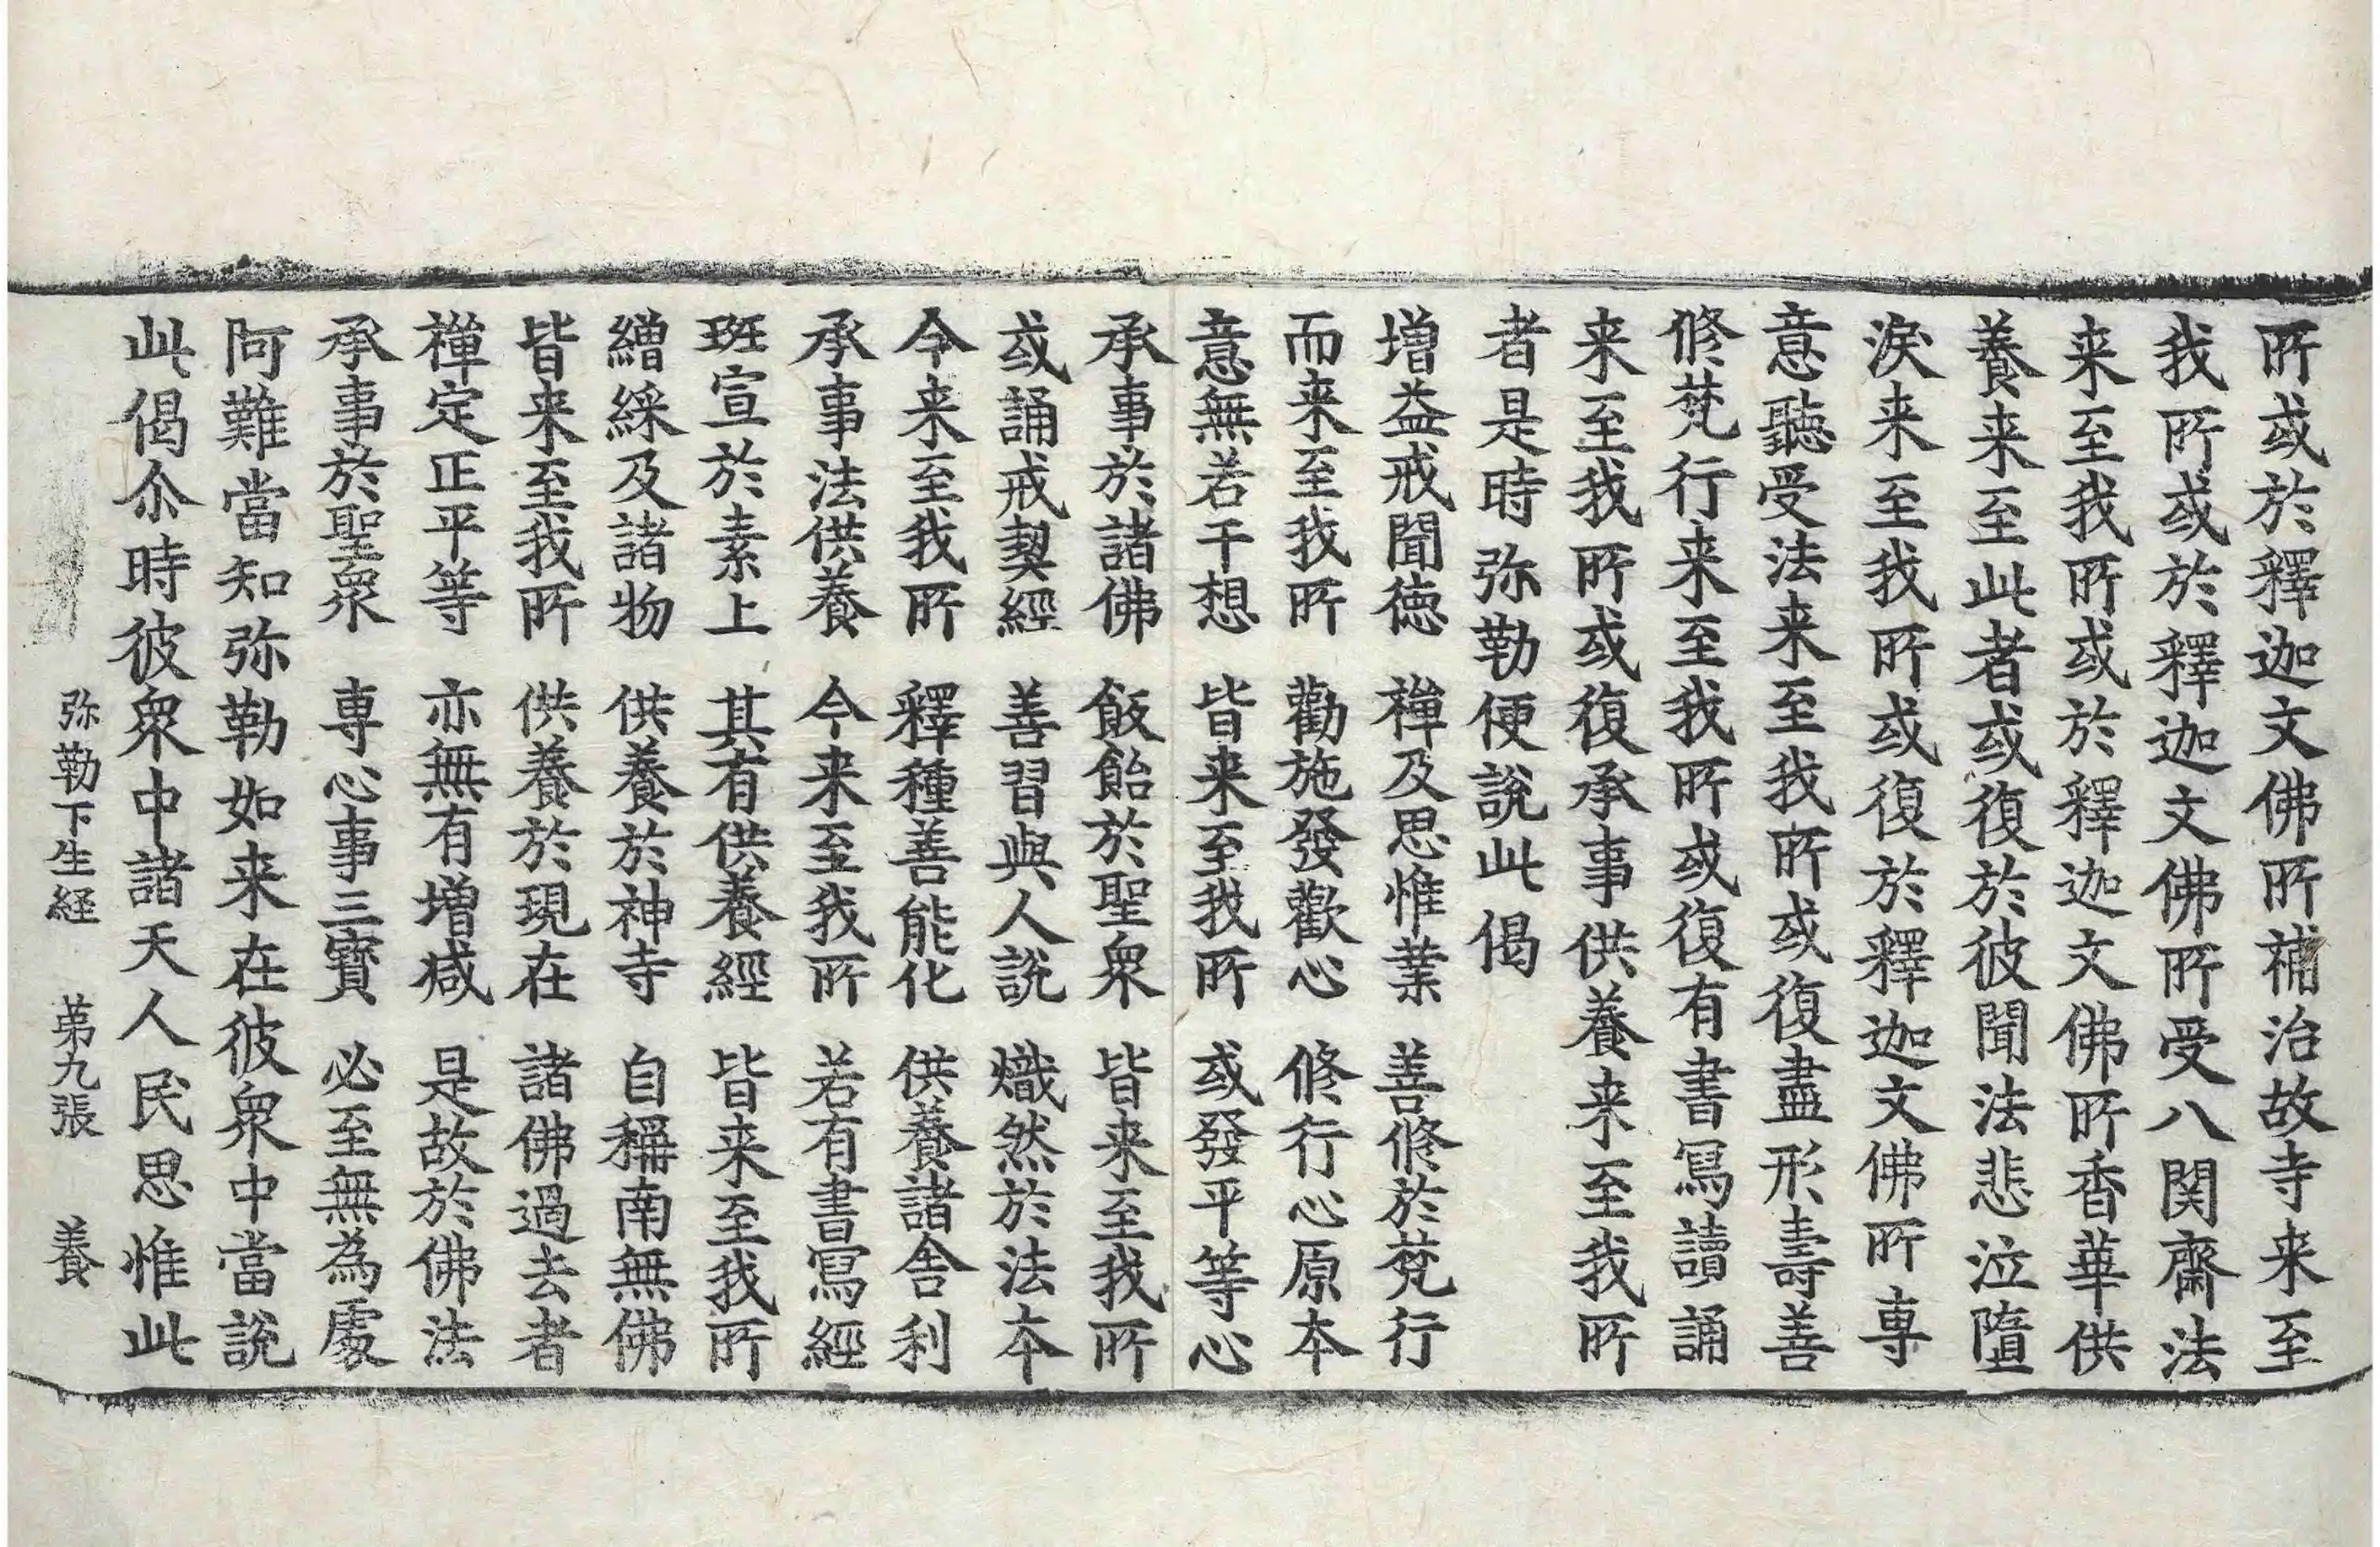 所或於釋迦文佛所補治故寺来至
我所或於釋迦文佛所受八関齋法
来至我所或於釋迦文佛所香華供
養来至此者或復於彼聞法悲泣墮
淚来至我所或復於釋迦文佛所專
意聽受法来至我所或復盡形壽善
修梵行来至我所或復有書寫讀誦
来至我所或復承事供養来至我所
者是時弥勒便說此偈
增益戒聞德　禪及思惟業　善修於梵行
而来至我所　勸施發歡心　修行心原本
意無若干想　皆来至我所　或發平等心
承事於諸佛　飯飴於聖衆　皆来至我所
或誦戒契經　善習與人說　熾然於法本
今来至我所　釋種善能化　供養諸舍利
承事法供養　今来至我所　若有書寫經
班宣於素上　其有供養經　皆来至我所
繒綵及諸物　供養於神寺　自稱南無佛
皆来至我所　供養於現在　諸佛過去者
禪定正平等　亦無有增減　是故於佛法
承事於聖衆　專心事三寶　必至無為處
阿難當知弥勒如来在彼衆中當說
此偈尒時彼衆中諸天人民思惟此
弥勒下生経　苐九張　養